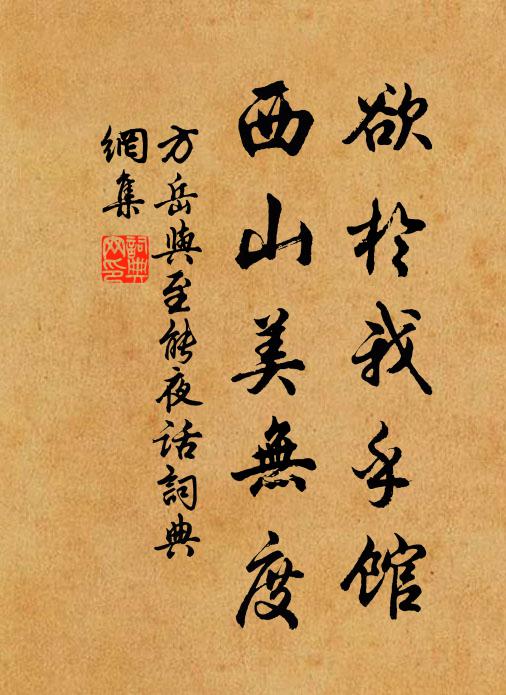 欲於我乎館
西山美無度
方岳與至能夜話詞典
網集
詞典網印